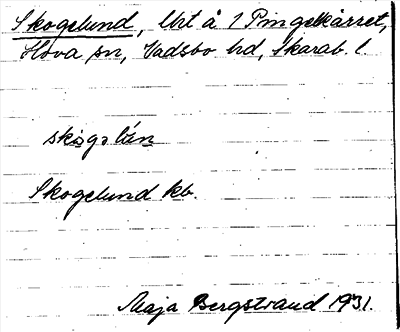 Skogelund, lht å 1 Pingelkärret,
Hova sn, Vadsbo hd, Skarab. l.
skogəlún
Skogelund kb.
Maja Bergstrand 1931.